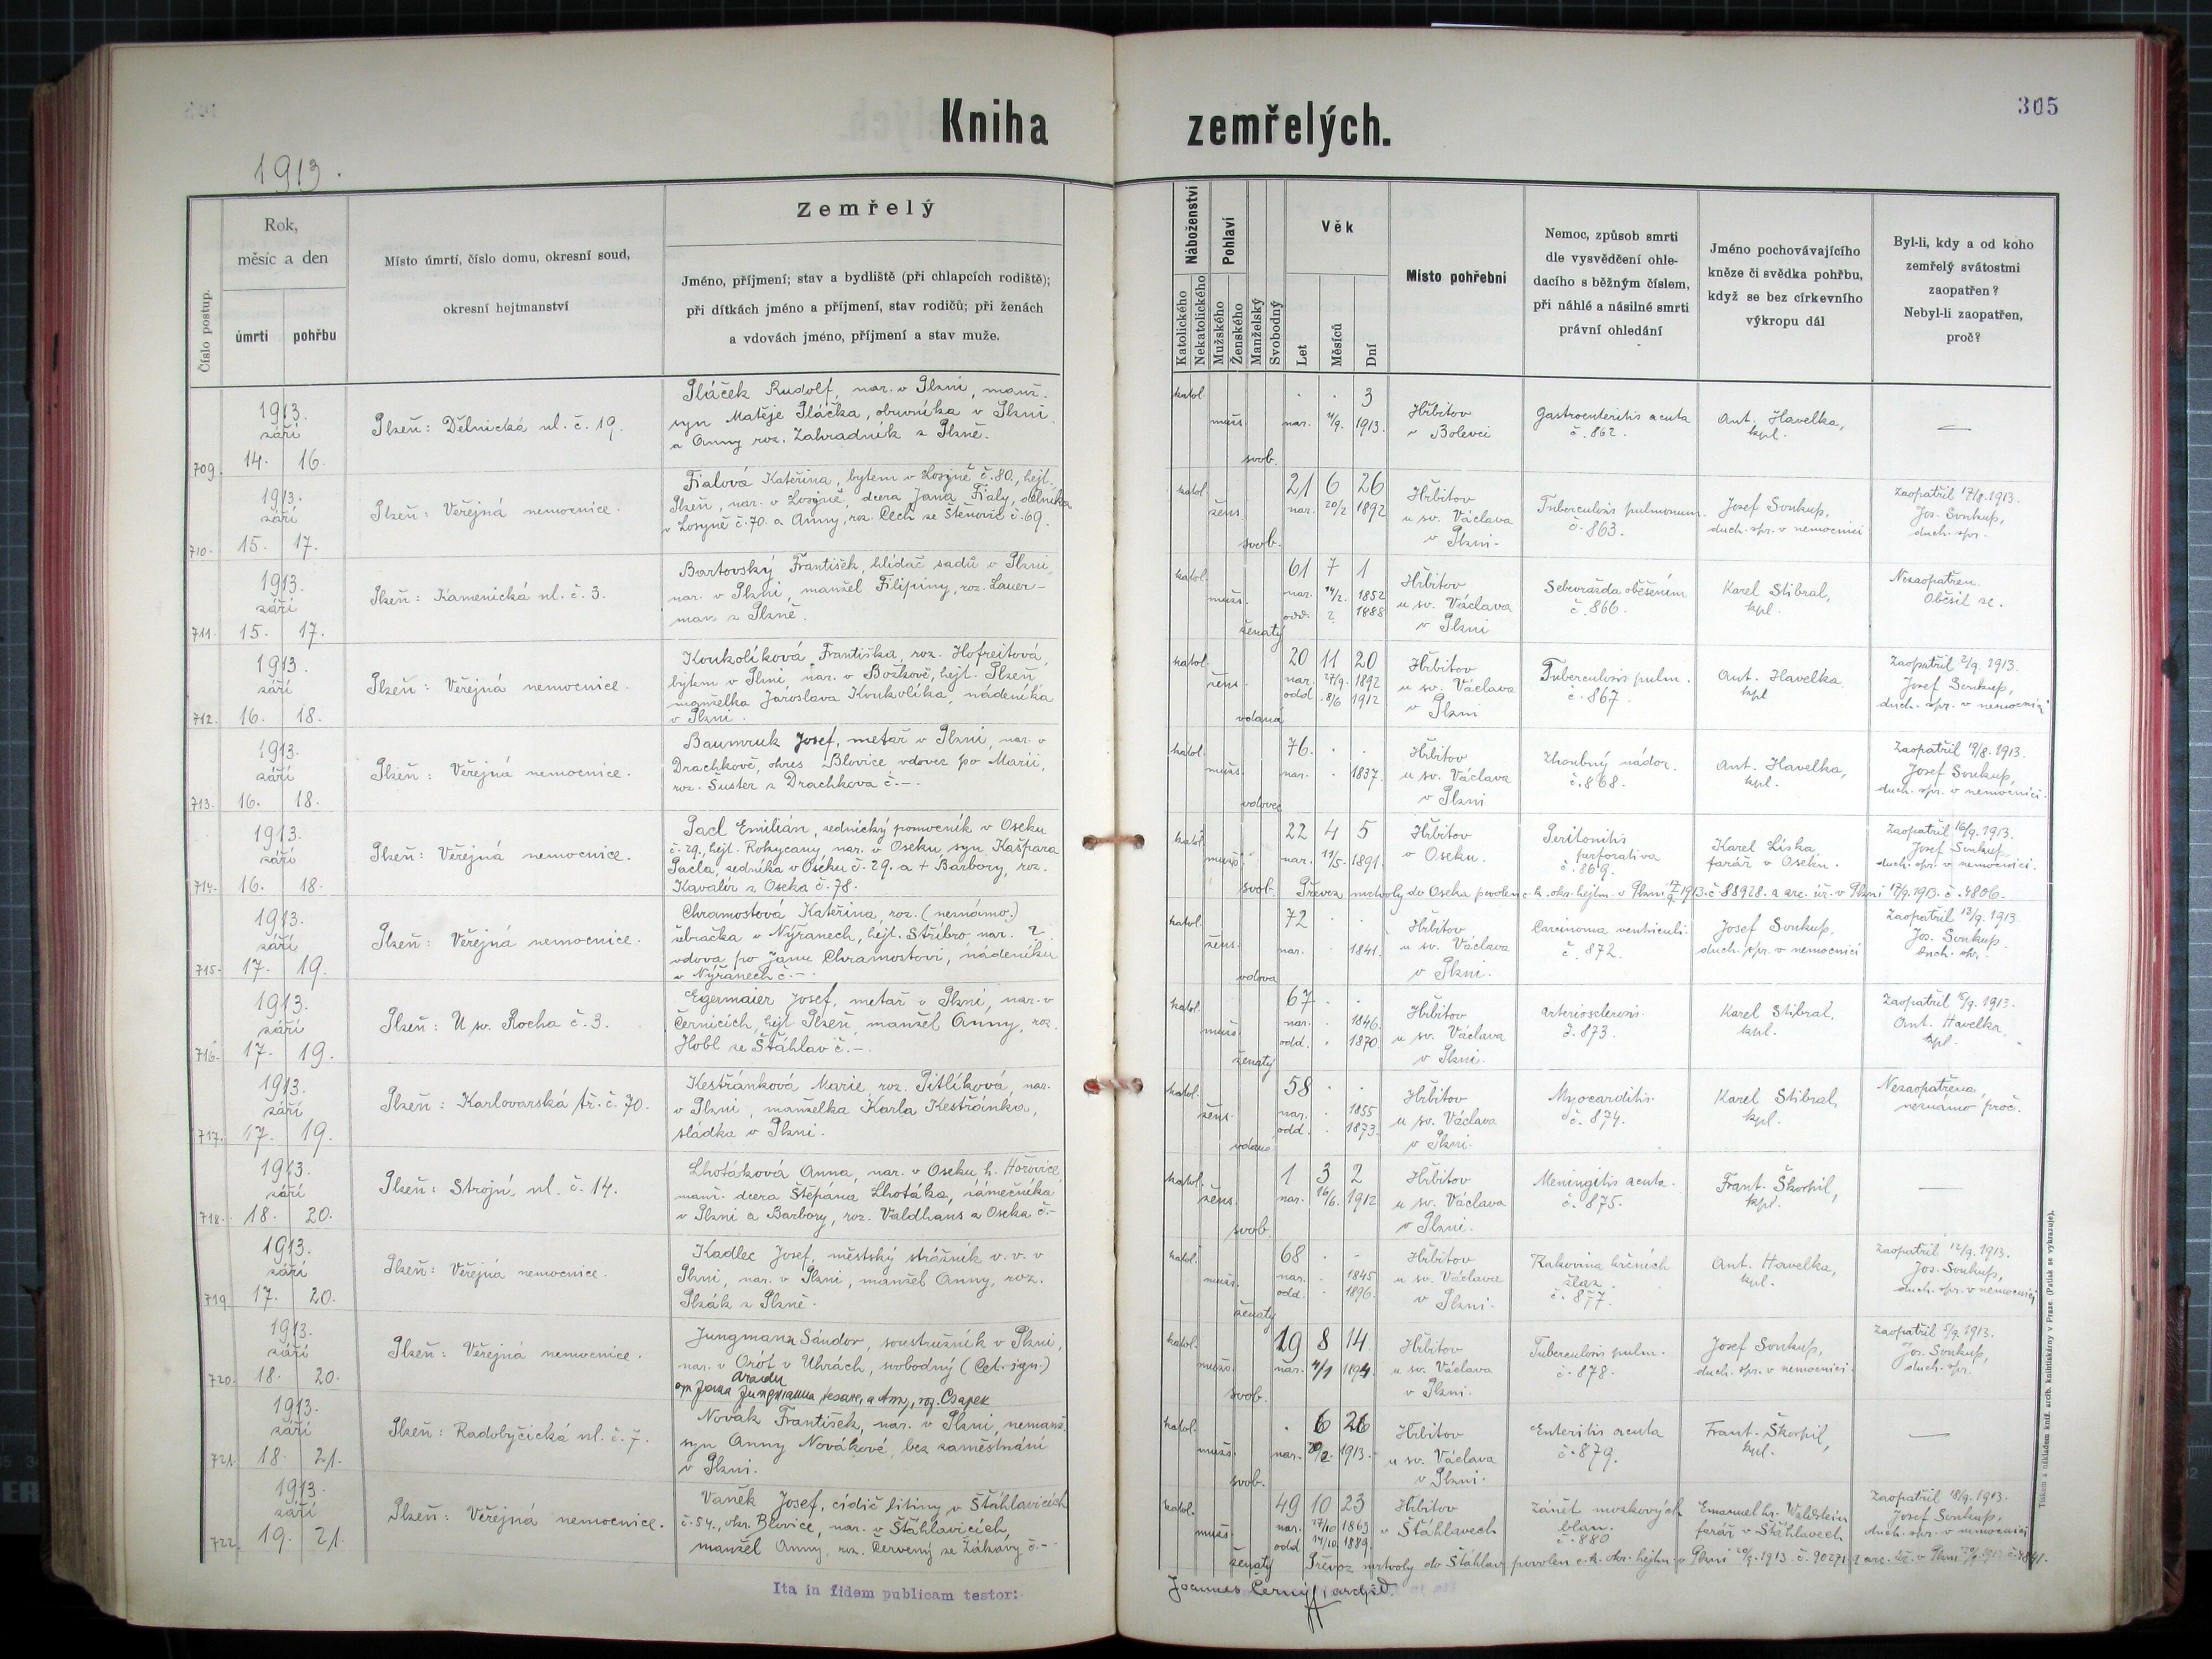 305
Kniha zemřelých.
1913.
Číslo postup.
Rok,
měsíc a den
úmrtí
pohřbu
Místo úmrtí, číslo domu, okresní soud,
okresní hejtmanství
Zemřelý
Jméno, příjmení; stav a bydliště (při chlapcích rodiště);
při dítkách jméno a příjmení, stav rodičů; při ženách
a vdovách jméno, příjmení a stav muže.
Náboženství
Katolického
Nekatolického
Pohlaví
Mužského
Ženského
Manželský
Svobodný
Věk
Let
Měsíců
Dní
Místo pohřební
Nemoc, způsob smrti
dle vysvědčení ohle-
dacího s běžným číslem,
při náhlé a násilné smrti
právní ohledání
Jméno pochovávajícího
kněze či svědka pohřbu,
když se bez církevního
výkropu dál
Byl-li, kdy a od koho
zemřelý svátostmi
zaopatřen?
Nebyl-li zaopatřen,
proč?
709.
1913.
září
14. 16.
Plzeň: Dělnická ul. č. 19.
Pláček Rudolf, nar. v Plzni, manž.
syn Matěje Pláčka, obuvníka v Plzni
a Anny roz. Zahradník z Plzně.
katol.
muž.
svob.
. . 3
nar. 11/9. 1913.
Hřbitov
v Bolevci
Gastroenteritis acuta
č. 862.
Ant. Havelka,
kpl.
—
710.
1913.
září
15. 17.
Plzeň: Veřejná nemocnice.
Fialová Kateřina, bytem v Losyně č. 80., hejt.
Plzeň, nar. v Losyně, dcera Jana Fialy, dělníka
v Losyně č. 70. a Anny, roz. Čech ze Štěnovic č. 69.
katol.
žens.
svob.
21 6 26
nar. 20/2 1892
Hřbitov
u sv. Václava
v Plzni.
Tuberculosis pulmonum.
č. 863.
Josef Soukup,
duch. spr. v nemocnici
Zaopatřil 17/8. 1913.
Jos. Soukup,
duch. spr.
711.
1913.
září
15. 17.
Plzeň: Kamenická ul. č. 3.
Bartovský František, hlídač sadů v Plzni,
nar. v Plzni, manžel Filipiny, roz. Lauer-
man z Plzně.
katol.
mužs.
ženatý
61 7 1
nar. 14/2. 1852
odd. ? 1888
Hřbitov
u sv. Václava
v Plzni
Sebevražda oběšením
č. 866.
Karel Stibral,
kpl.
Nezaopatřen.
Oběsil se.
712.
1913.
září
16. 18.
Plzeň: Veřejná nemocnice.
Koukolíková Františka, roz. Hofreitová,
bytem v Plzni, nar. v Božkově, hejt. Plzeň
manželka Jaroslava Koukolíka, nádeníka
v Plzni.
katol.
žens.
vdaná
20 11 20
nar. 27/9. 1892
odd. 8/6 1912
Hřbitov
u sv. Václava
v Plzni
Tuberculosis pulm.
č. 867
Ant. Havelka
kpl
Zaopatřil 2/9. 1913.
Josef Soukup,
duch. spr. v nemocnici
713.
1913.
září
16. 18.
Plzeň: Veřejná nemocnice.
Baumruk Josef, metař v Plzni, nar. v
Drachkově, okres Blovice vdovec po Marii,
roz. Šuster z Drachkova č. –.
katol.
mužs.
vdovec
76. . .
nar. . 1837.
Hřbitov
u sv. Václava
v Plzni
Zhoubný nádor.
č. 868.
Ant. Havelka,
kpl.
Zaopatřil 19/8. 1913.
Josef Soukup,
duch. spr. v nemocnici.
714.
1913.
září
16. 18.
Plzeň: Veřejná nemocnice.
Pacl Emilián, zednický pomocník v Oseku
č. 29., hejt. Rokycany nar. v Oseku syn Kašpara
Pacla, zedníka v Oseku č. 29. a + Barbory, roz.
Kavalír z Oseka č. 78.
katol.
mužs.
svob.
22 4 5
nar. 11/5. 1891.
Hřbitov
v Oseku.
Peritonitis
perforativa
č. 869.
Karel Liska
farář v Oseku.
Zaopatřil 16/9. 1913.
Josef Soukup
duch. spr. v nemocnici.
Převoz mrtvoly do Oseka povolen c. k. okr. hejtm. v Plzni 17/9 1913. č. 88928. a arc. úř. v Plzni 17/9. 1913. č. 4806.
715.
1913.
září
17. 19.
Plzeň: Veřejná nemocnice.
Chramostová Kateřina, roz. (neznámo.)
žebračka v Nýřanech, hejt. Stříbro nar. ?
vdova po Janu Chramostovi, nádeníku
v Nýřanech č. –.
katol.
žens.
vdova
72 . .
nar. . 1841.
Hřbitov
u sv. Václava
v Plzni.
Carcinoma ventriculi.
č. 872.
Josef Soukup.
duch. spr. v nemocnici
Zaopatřil 13/9. 1913.
Jos. Soukup.
duch. spr.
716.
1913.
září
17. 19.
Plzeň: U sv. Rocha č. 3.
Egermaier Josef, metař v Plzni, nar. v
Černicích, hejt. Plzeň, manžel Anny, roz.
Hobl ze Šťáhlav č. –.
katol.
mužs.
ženatý
67 . .
nar. . 1846.
odd. . 1870.
Hřbitov
u sv. Václava
v Plzni.
Arteriosclerosis.
č. 873.
Karel Stibral,
kpl.
Zaopatřil 15/9. 1913.
Ant. Havelka,
kpl.
717.
1913.
září
17. 19.
Plzeň: Karlovarská tř. č. 70.
Kestřánková Marie, roz. Pitlíková, nar.
v Plzni, manželka Karla Kestřánka,
sládka v Plzni.
katol.
žens.
vdaná
58 . .
nar. . 1855
odd. . 1873.
Hřbitov
u sv. Václava
v Plzni.
Myocarditis.
č. 874.
Karel Stibral,
kpl.
Nezaopatřena,
neznámo proč.
718.
1913.
září
18. 20.
Plzeň: Strojní ul. č. 14.
Lhotáková Anna, nar. v Oseku h. Hořovice,
manž. dcera Štěpána Lhotáka, zámečníka
v Plzni a Barbory, roz. Valdhans z Oseka č. –
katol.
žens.
svob.
1 3 2
nar. 16/6. 1912
Hřbitov
u sv. Václava
v Plzni.
Meningitis acuta.
č. 875.
Frant. Škorpil,
kpl.
—
719
1913.
září
17. 20.
Plzeň: Veřejná nemocnice.
Kadlec Josef, městský strážník v. v. v
Plzni, nar. v Plzni, manžel Anny, roz.
Plzák z Plzně.
katol.
mužs.
ženatý
68 . .
nar. . 1845
odd. . 1896.
Hřbitov
u sv. Václava
v Plzni.
Rakovina krčních
žlaz.
č. 877.
Ant. Havelka,
kpl.
Zaopatřil 12/9. 1913.
Jos. Soukup,
duch. spr. v nemocnici
720.
1913.
září
18. 20.
Plzeň: Veřejná nemocnice.
Jungmann Sándor, soustružník v Plzni,
nar. v Orót v Uhrách, svobodný (Cet. ign.)
Aradu
syn Jana Jungmanna tesaře, a Anny, roz. Csapek
katol.
mužs.
svob.
19 8 14.
nar. 4/1 1894.
Hřbitov
u sv. Václava
v Plzni.
Tuberculosis pulm.
č. 878.
Josef Soukup,
duch. spr. v nemocnici.
Zaopatřil 5/9. 1913.
Jos. Soukup,
duch. spr.
721.
1913.
září
18. 21.
Plzeň: Radobyčická ul. č. 7.
Novák František, nar. v Plzni, nemanž.
syn Anny Novákové, bez zaměstnání
v Plzni.
katol.
mužs.
svob.
. 6 26
nar. 20/2. 1913.
Hřbitov
u sv. Václava
v Plzni.
Enteritis acuta
č. 879.
Frant. Škorpil,
kpl.
—
722.
1913.
září
19. 21.
Plzeň: Veřejná nemocnice.
Vaněk Josef, cídič litiny v Šťáhlavicích
č. 54., okr. Blovice, nar. v Šťáhlavicích,
manžel Anny, roz. Červený ze Žákavy č. –
katol.
mužs.
ženatý
49 10 23
nar. 27/10 1863
odd. 14/10. 1889.
Hřbitov
v Šťáhlavech
Zánět mozkových
blan.
č. 880
Emanuel hr. Waldstein
farář v Šťáhlavech
Zaopatřil 18/9. 1913.
Josef Soukup,
duch. spr. v nemocnici
Převoz mrtvoly do Šťáhlav povolen c. k. okr. hejtm. v Plzni 20/9. 1913. č. 90271. a arc. úř. v Plzni 20/9. 1913. č. 4841.
Ita in fidem publicam testor:
Joannes Černý, archid.
Tiskem a nákladem kníž. arcib. knihtiskárny v Praze. (Patisk se vyhrazuje).